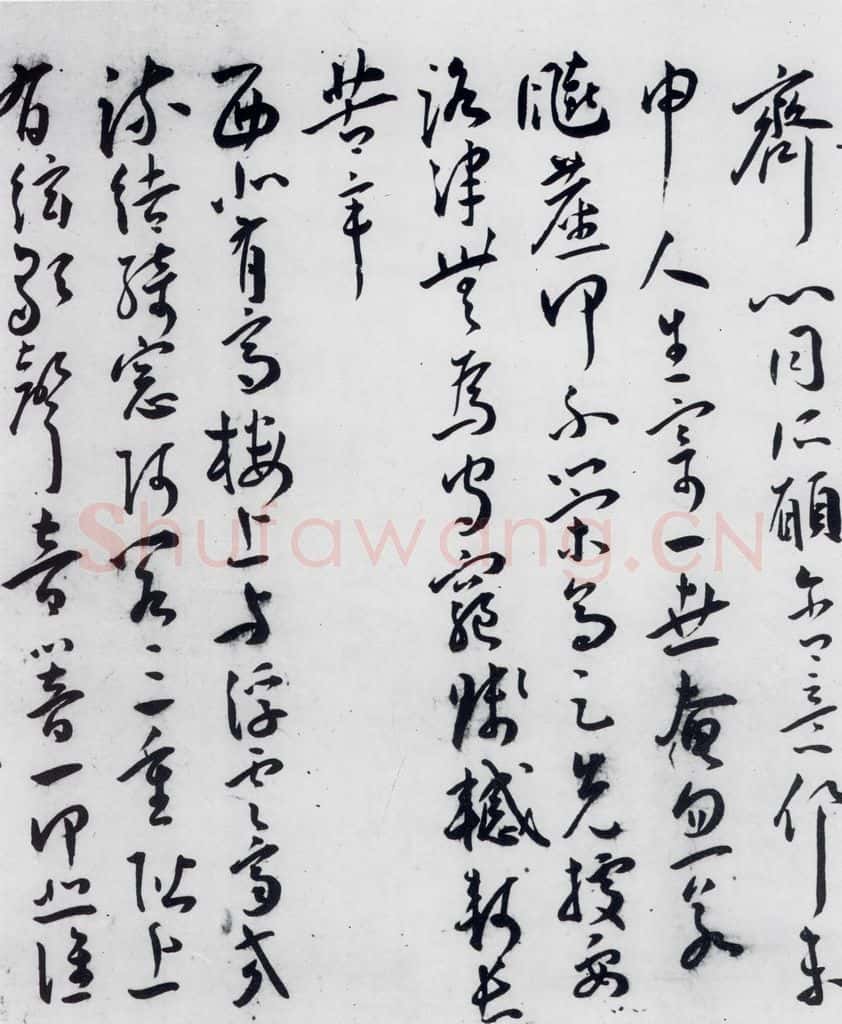 齊心同所願含意俱未
申人生寄一世奄忽若
飈塵何不策高足先據要
路津無為守窮賤轗軻長
苦辛
西北有高樓上與浮雲齊交
疏結綺窓阿閣三重階上
有絃歌聲音響一何悲誰
Shufawang.CN